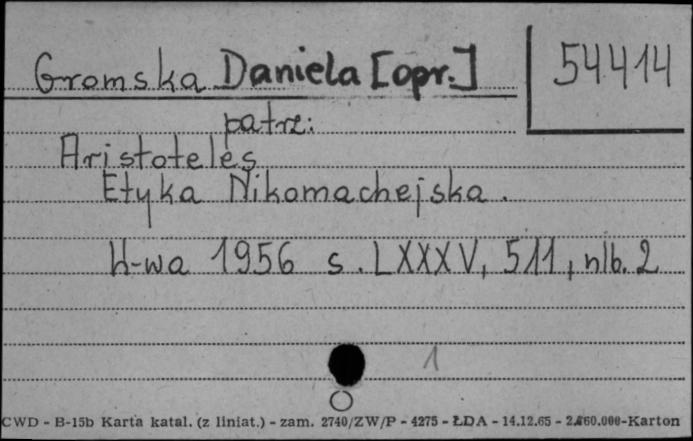 Gromska Daniela [opr.]
54414
patrz:
Aristoteles
Etyka Nikomachejska.
W-wa 1956 s. LXXXV, 511, nlb. 2
1
CWD - B-15b Karta katal. (z liniat.) - zam. 2740/ZW/P - 4275 - ŁDA - 14.12.65 - 2.660.000-Karton